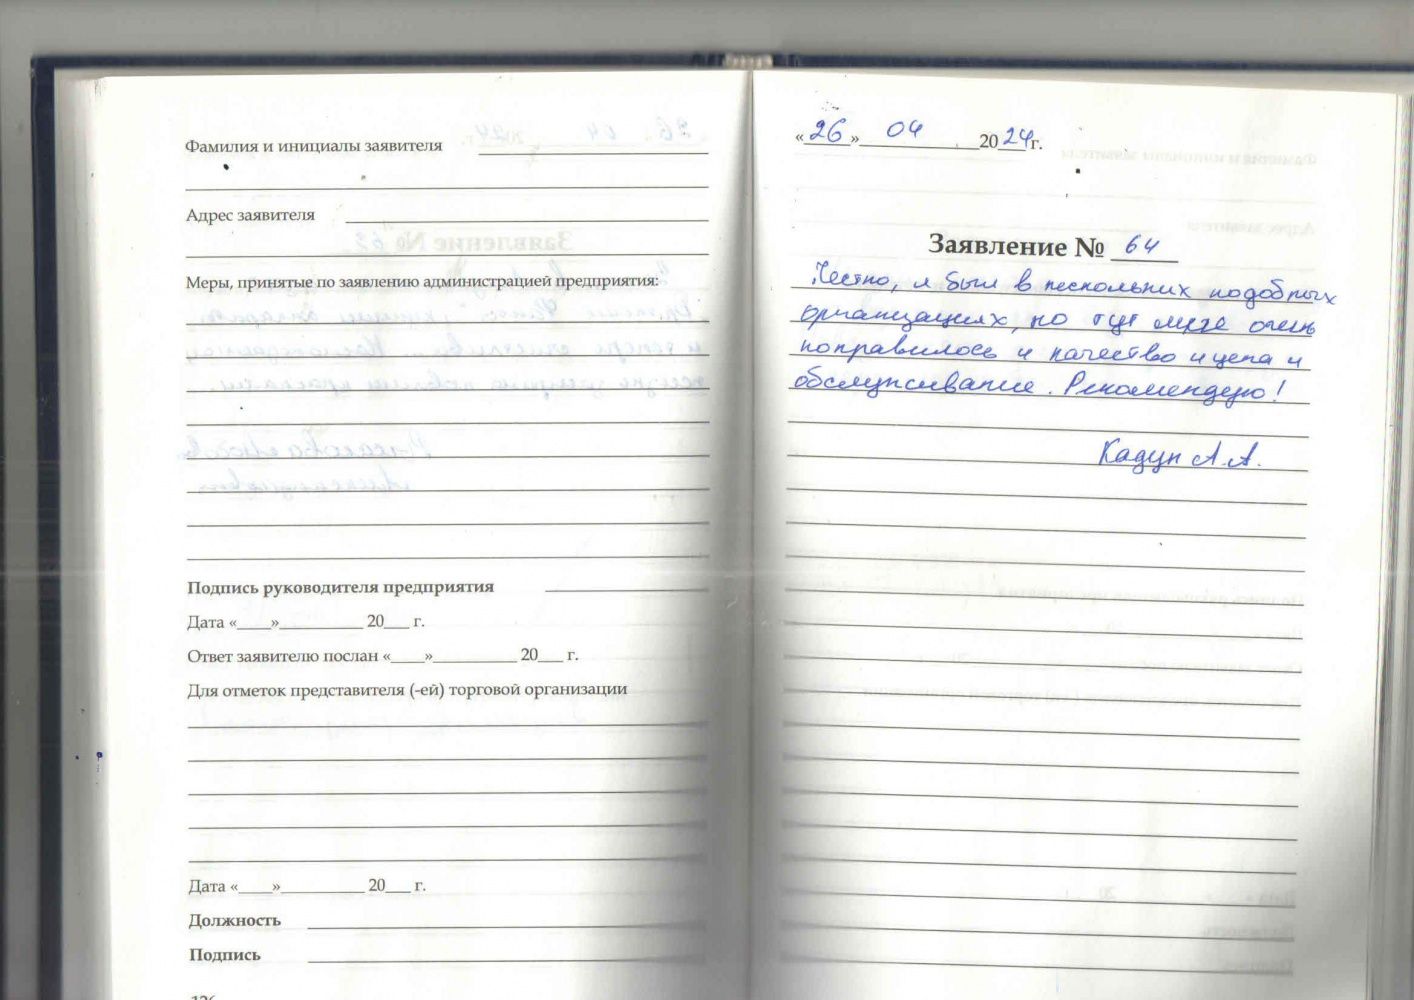 Фамилия и инициалы заявителя
Адрес заявителя
Меры, принятые по заявлению администрацией предприятия:
Подпись руководителя предприятия
Дата «____»__________ 20___ г.
Ответ заявителю послан «____»__________ 20___ г.
Для отметок представителя (-ей) торговой организации
Дата «____»__________ 20___ г.
Должность
Подпись
«26» 04 2024г.
Заявление № 64
Честно, я был в нескольких подобных
организациях, но тут мне очень
понравилось и качество и цена и
обслуживание. Рекомендую!
Кадун А.А.